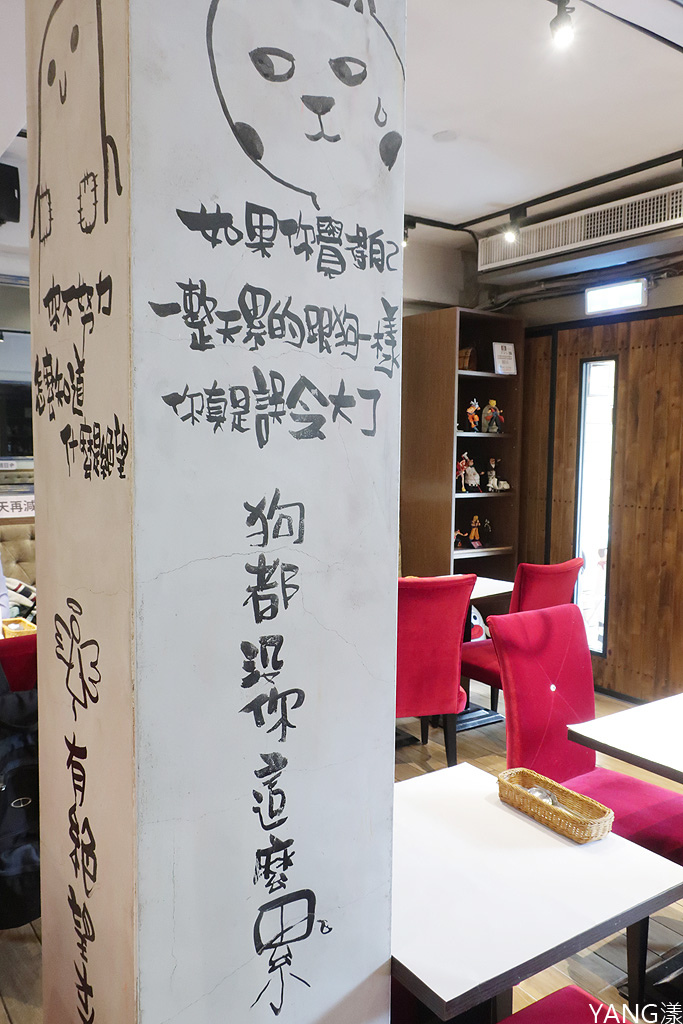 不努力
怎麼知道
什麼是絕望
有絕望
如果你覺得自己
一整天累的跟狗一樣
你真是誤會大了
狗都沒你這麼累
天再減
YANG漾